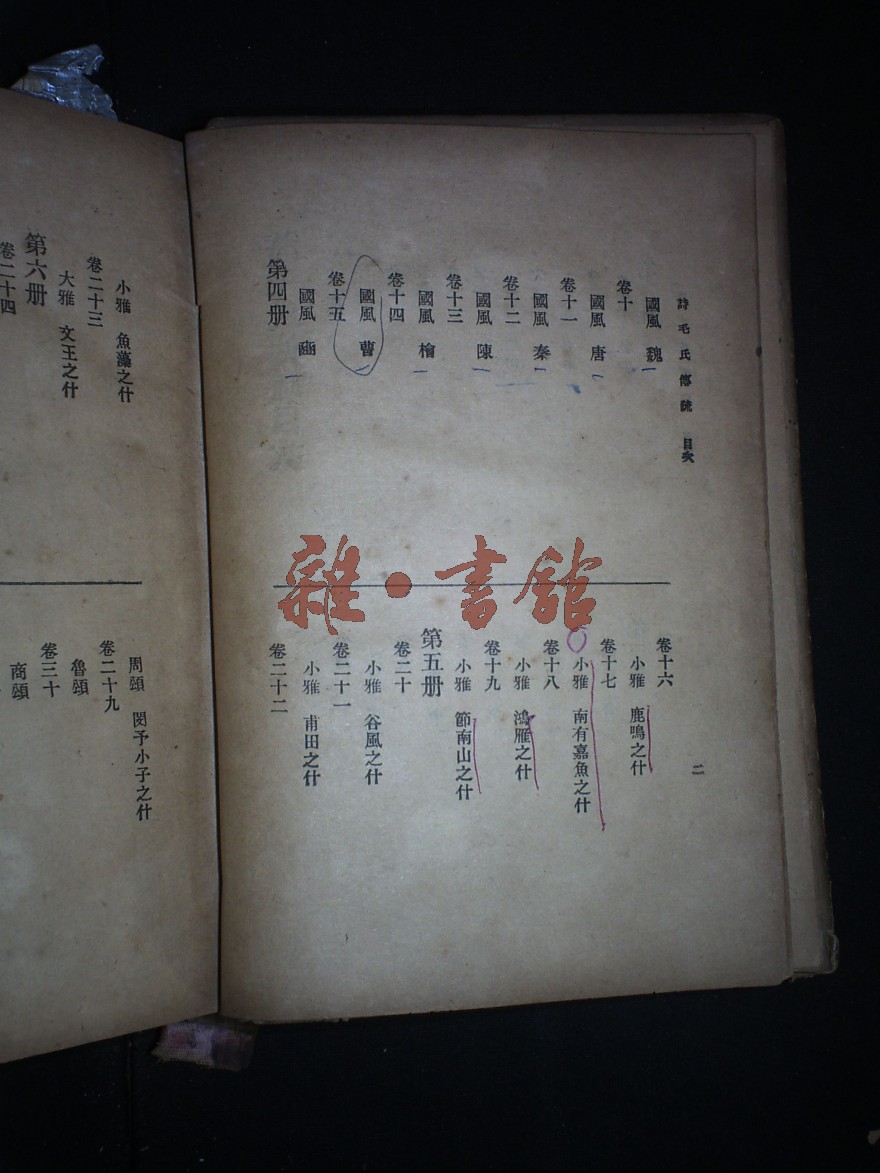 詩毛氏傳疏 目次
國風 魏
卷十
國風 唐
卷十一
國風 秦
卷十二
國風 陳
卷十三
國風 檜
卷十四
國風 曹
卷十五
國風 豳
第四册
二
卷十六
小雅 鹿鳴之什
卷十七
小雅 南有嘉魚之什
卷十八
小雅 鴻雁之什
卷十九
小雅 節南山之什
第五册
卷二十
小雅 谷風之什
卷二十一
小雅 甫田之什
卷二十二
小雅 魚藻之什
卷二十三
大雅 文王之什
第六册
卷二十四
周頌 閔予小子之什
卷二十九
魯頌
卷三十
商頌
雜·書館